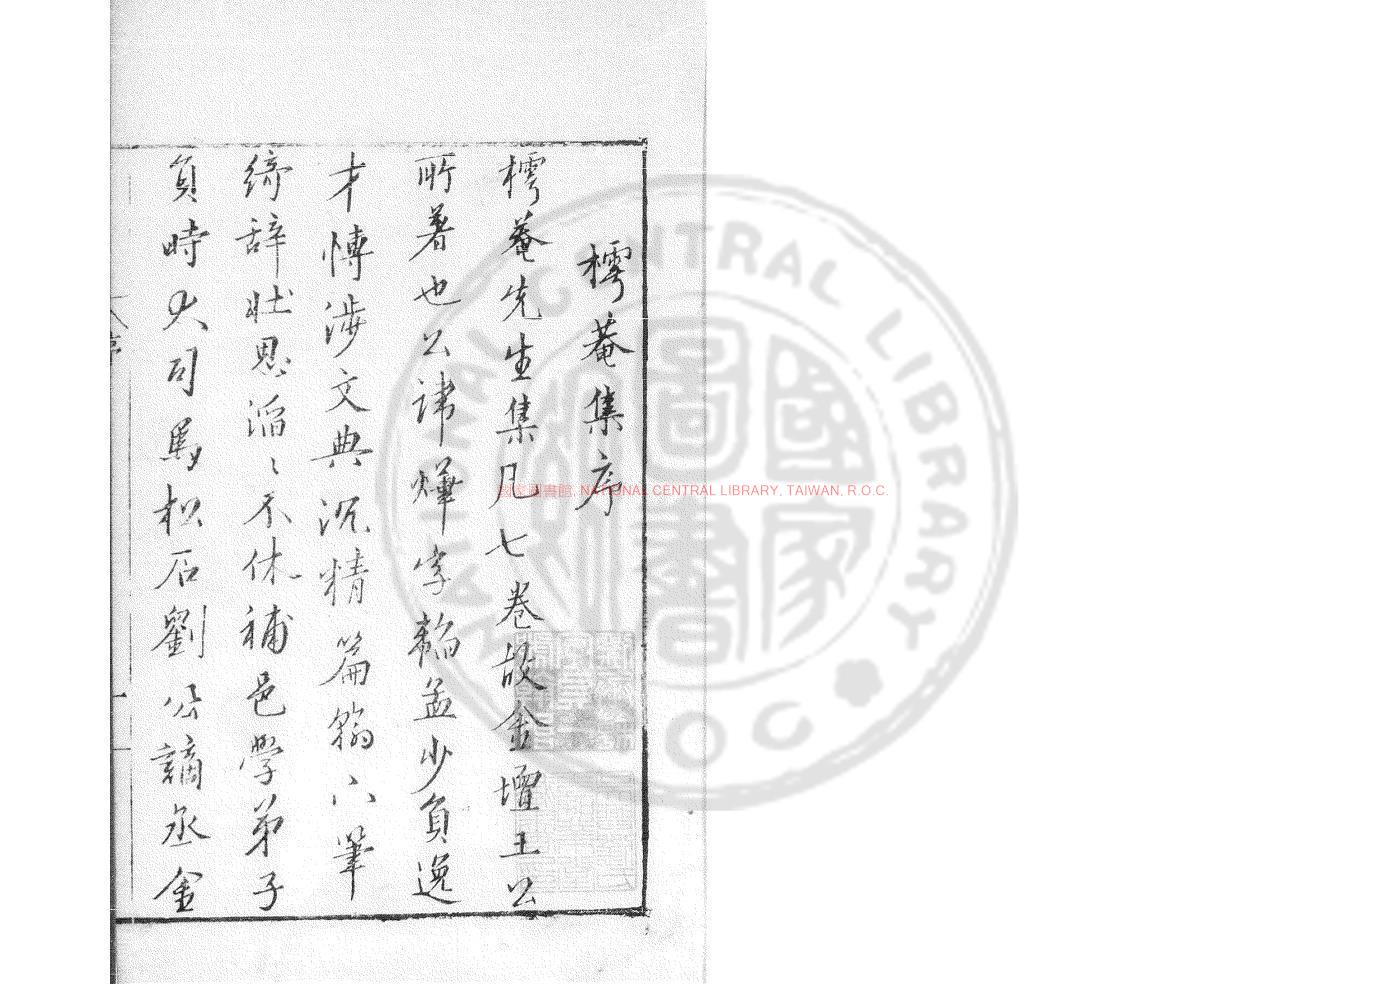 樗菴集序
樗菴先生集凡七卷故金壇王公
所著也公諱燁字韜孟少負逸
才博涉文典沉精篇翰入筆
締辭壯思滔〻不休補邑學弟子
負時大司馬松石劉公謫丞金
國家圖書館, NATIONAL CENTRAL LIBRARY, TAIWAN, R.O.C.
NATIONAL CENTRAL LIBRARY
R.O.C
國家圖書